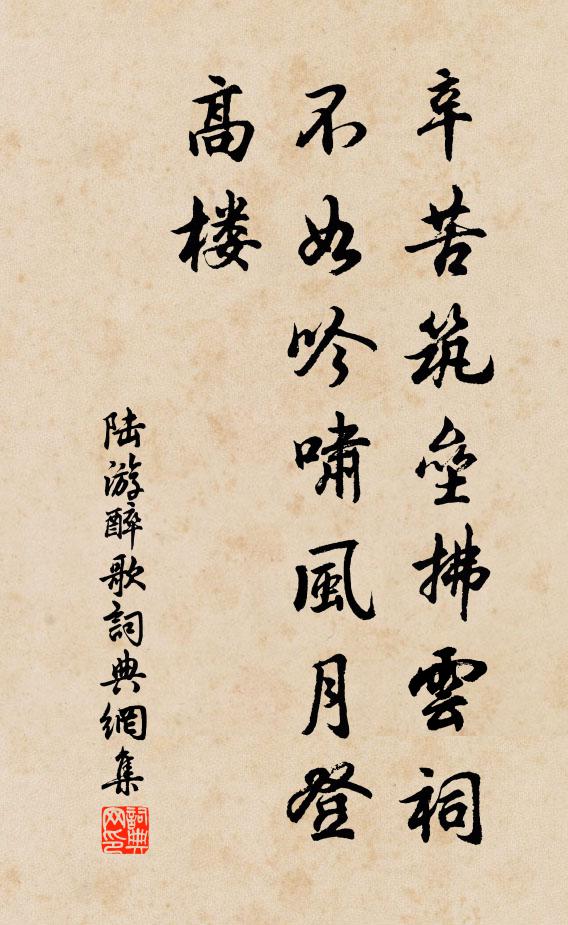 辛苦筑壘拂雲祠
不如吟嘯風月登
高楼
陆游醉歌詞典網集
詞典网印